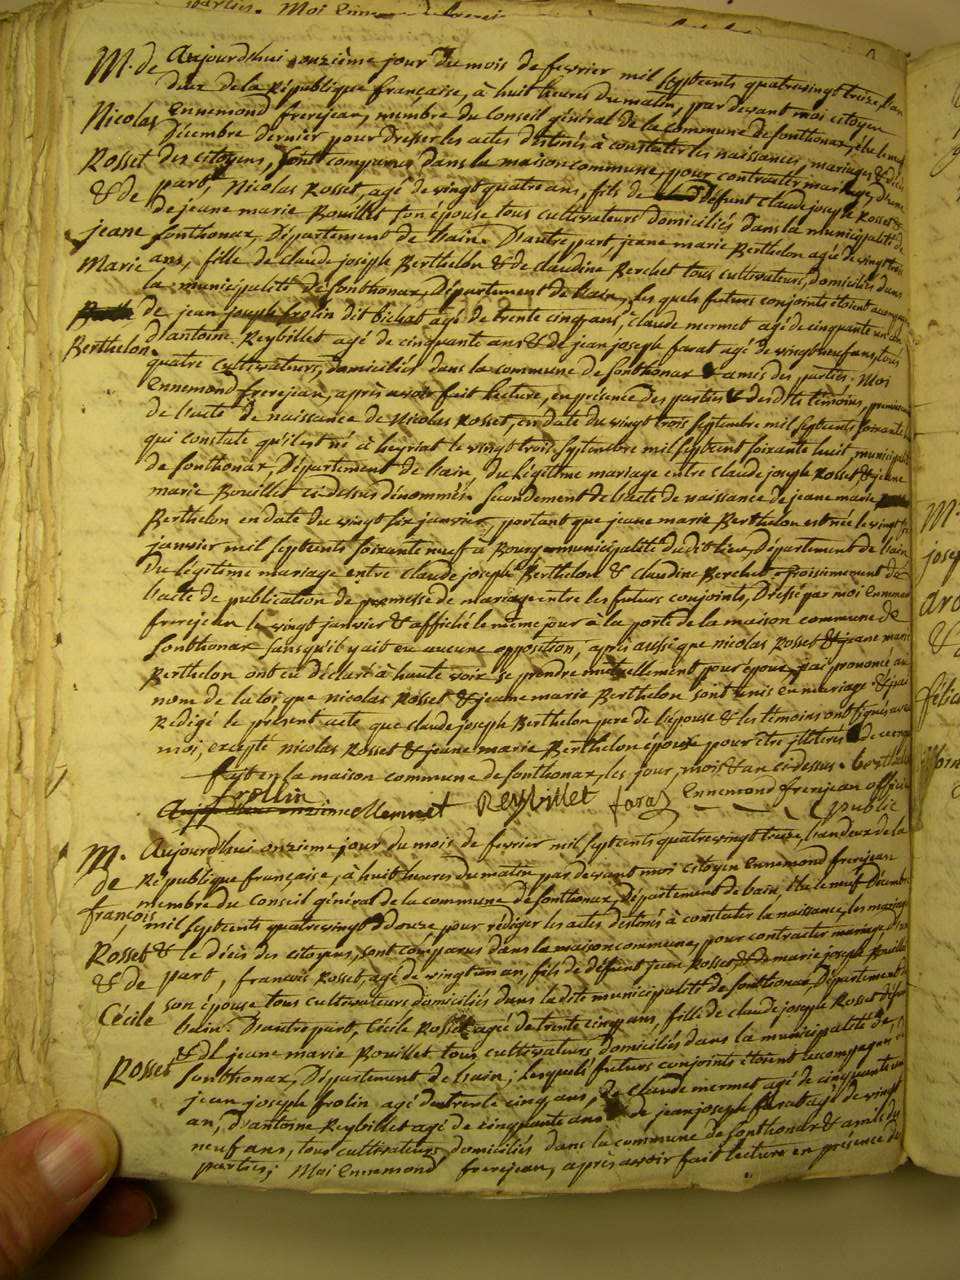 parties. Moi Ennemond frerejean
M. de Aujourdhui onzième jour du mois de fevrier mil septcents quatrevingt treize, l'an
deux de la République française, à huit heures du matin, par devant moi citoyen
Nicolas Ennemond frerejean, membre du Conseil général de la commune de fonthonax, élu le neuf
Décembre dernier pour dresser les actes destinés à constater les naissances, mariages & décès
Rosset des citoyens, sont comparus dans la maison commune, pour contracter mariage, d'une
& de part, Nicolas Rosset, agé de vingt quatre ans, fils de défunt claude joseph Rosset &
de jeane marie Bouillet son épouse tous cultivateurs domiciliés dans la municipalité de
jeane fonthonax, Département de l'ain. D'autre part, jeane marie Berthelon agée de vingt trois
Marie ans, fille de claude joseph Berthelon & de claudine Berchet tous cultivateurs, domiciliés dans
la municipalité de fonthonax, Département de l'ain, les quels futurs conjoints étoient accompagnés
de jean joseph frolin dit bichat agé de trente cinq ans, de claude mermet agé de cinquante un an
Berthelon d'antoine Reybillet agé de cinquante ans & de jean joseph farat agé de vingt neuf ans, tous
quatre cultivateurs, domiciliés dans la commune de fonthonax & amis des parties. Moi
Ennemond frerejean, après avoir fait lecture, en présence des parties & desdits témoins, premièrement
de l'acte de naissance de Nicolas Rosset, en date du vingt trois septembre mil septcents soixante
qui constate qu'il est né à heyriat le vingt trois septembre mil septcent soixante huit, municipalité
de fonthonax, Département de l'ain du légitime mariage entre claude joseph Rosset & jeane
marie Bouillet ci-dessus dénommés. Secondement de l'acte de naissance de jeane marie
Berthelon en date du vingt six janvier, portant que jeane marie Berthelon est née le vingt six
janvier mil septcents soixante neuf à Bourg municipalité dudit lieu, Département de l'ain
du légitime mariage entre claude joseph Berthelon & claudine Berchet. Troisiemement de
l'acte de publication de promesse de mariage entre les futurs conjoints, dressé par moi Ennemond
frerejean le vingt janvier & affiché le même jour à la porte de la maison commune de
fonthonax sans qu'il y ait eu aucune opposition, après aussi que nicolas Rosset & jeane marie
Berthelon ont eu déclaré à haute voix se prendre mutuellement pour époux, j'ai prononcé au
nom de la loi que nicolas Rosset & jeane marie Berthelon sont unis en mariage & j'ai
rédigé le présent acte que claude joseph Berthelon pere de l'épouse & les témoins ont signés avec
moi, excepté nicolas Rosset & jeane marie Berthelon époux pour être illiterés de ce requis
fait en la maison commune de fonthonax, les jour, mois & an ci-dessus.
frollin Mermet Reybillet farat Ennemond frerejean officier
public
M. Aujourdhui onzieme jour du mois de fevrier mil septcents quatrevingt treize, l'an deux de la
de République française, à huit heures du matin par devant moi citoyen Ennemond frerejean
membre du Conseil général de la commune de fonthonax, Département de l'ain, élu le neuf Décembre
françois mil septcents quatrevingt douze pour rédiger les actes destinés à constater la naissance, les mariages
Rosset & le décès des citoyens, sont comparus dans la maison commune, pour contracter mariage, d'une
& de part, francois Rosset, agé de vingt un an, fils de défunt jean Rosset, & de marie joseph Bouillet
Cécile son épouse tous cultivateurs domiciliés dans ladite municipalité de fonthonax, Département de
l'ain. D'autre part, Cécile Rosset agée de trente cinq ans fille de claude joseph Rosset défunt
& de jeane marie Bouillet, tous cultivateurs domiciliés dans la municipalité de
Rosset fonthonax, Département de l'ain; lesquels futurs conjoints étoient accompagnés de
jean joseph frolin agé de trente cinq ans, de claude mermet agé de cinquante un
an, d'antoine Reybillet agé de cinquante ans & de jean joseph farat agé de vingt
neuf ans, tous cultivateurs, domiciliés dans la commune de fonthonax & amis des
parties; Moi Ennemond frerejean, après avoir fait lecture en présence des